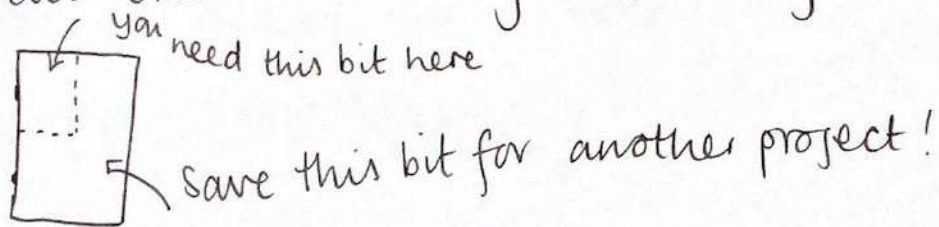 you
need this bit here
Save this bit for another project!